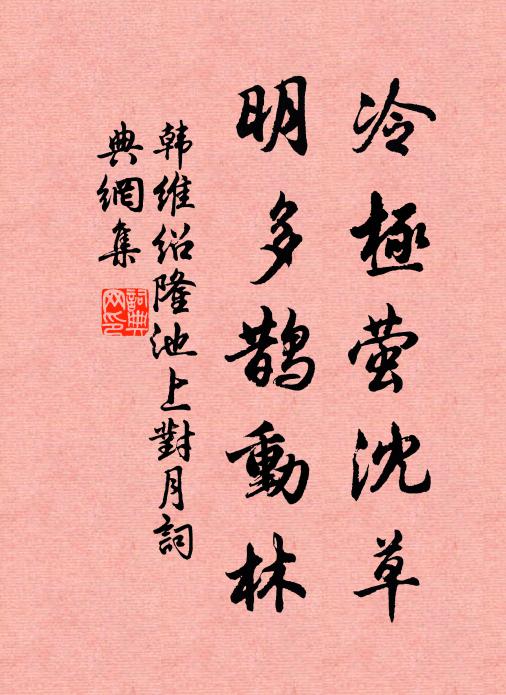 冷極萤沈草
明多鹊動林
韩维绍隆池上對月詞
典網集
詞典
网印